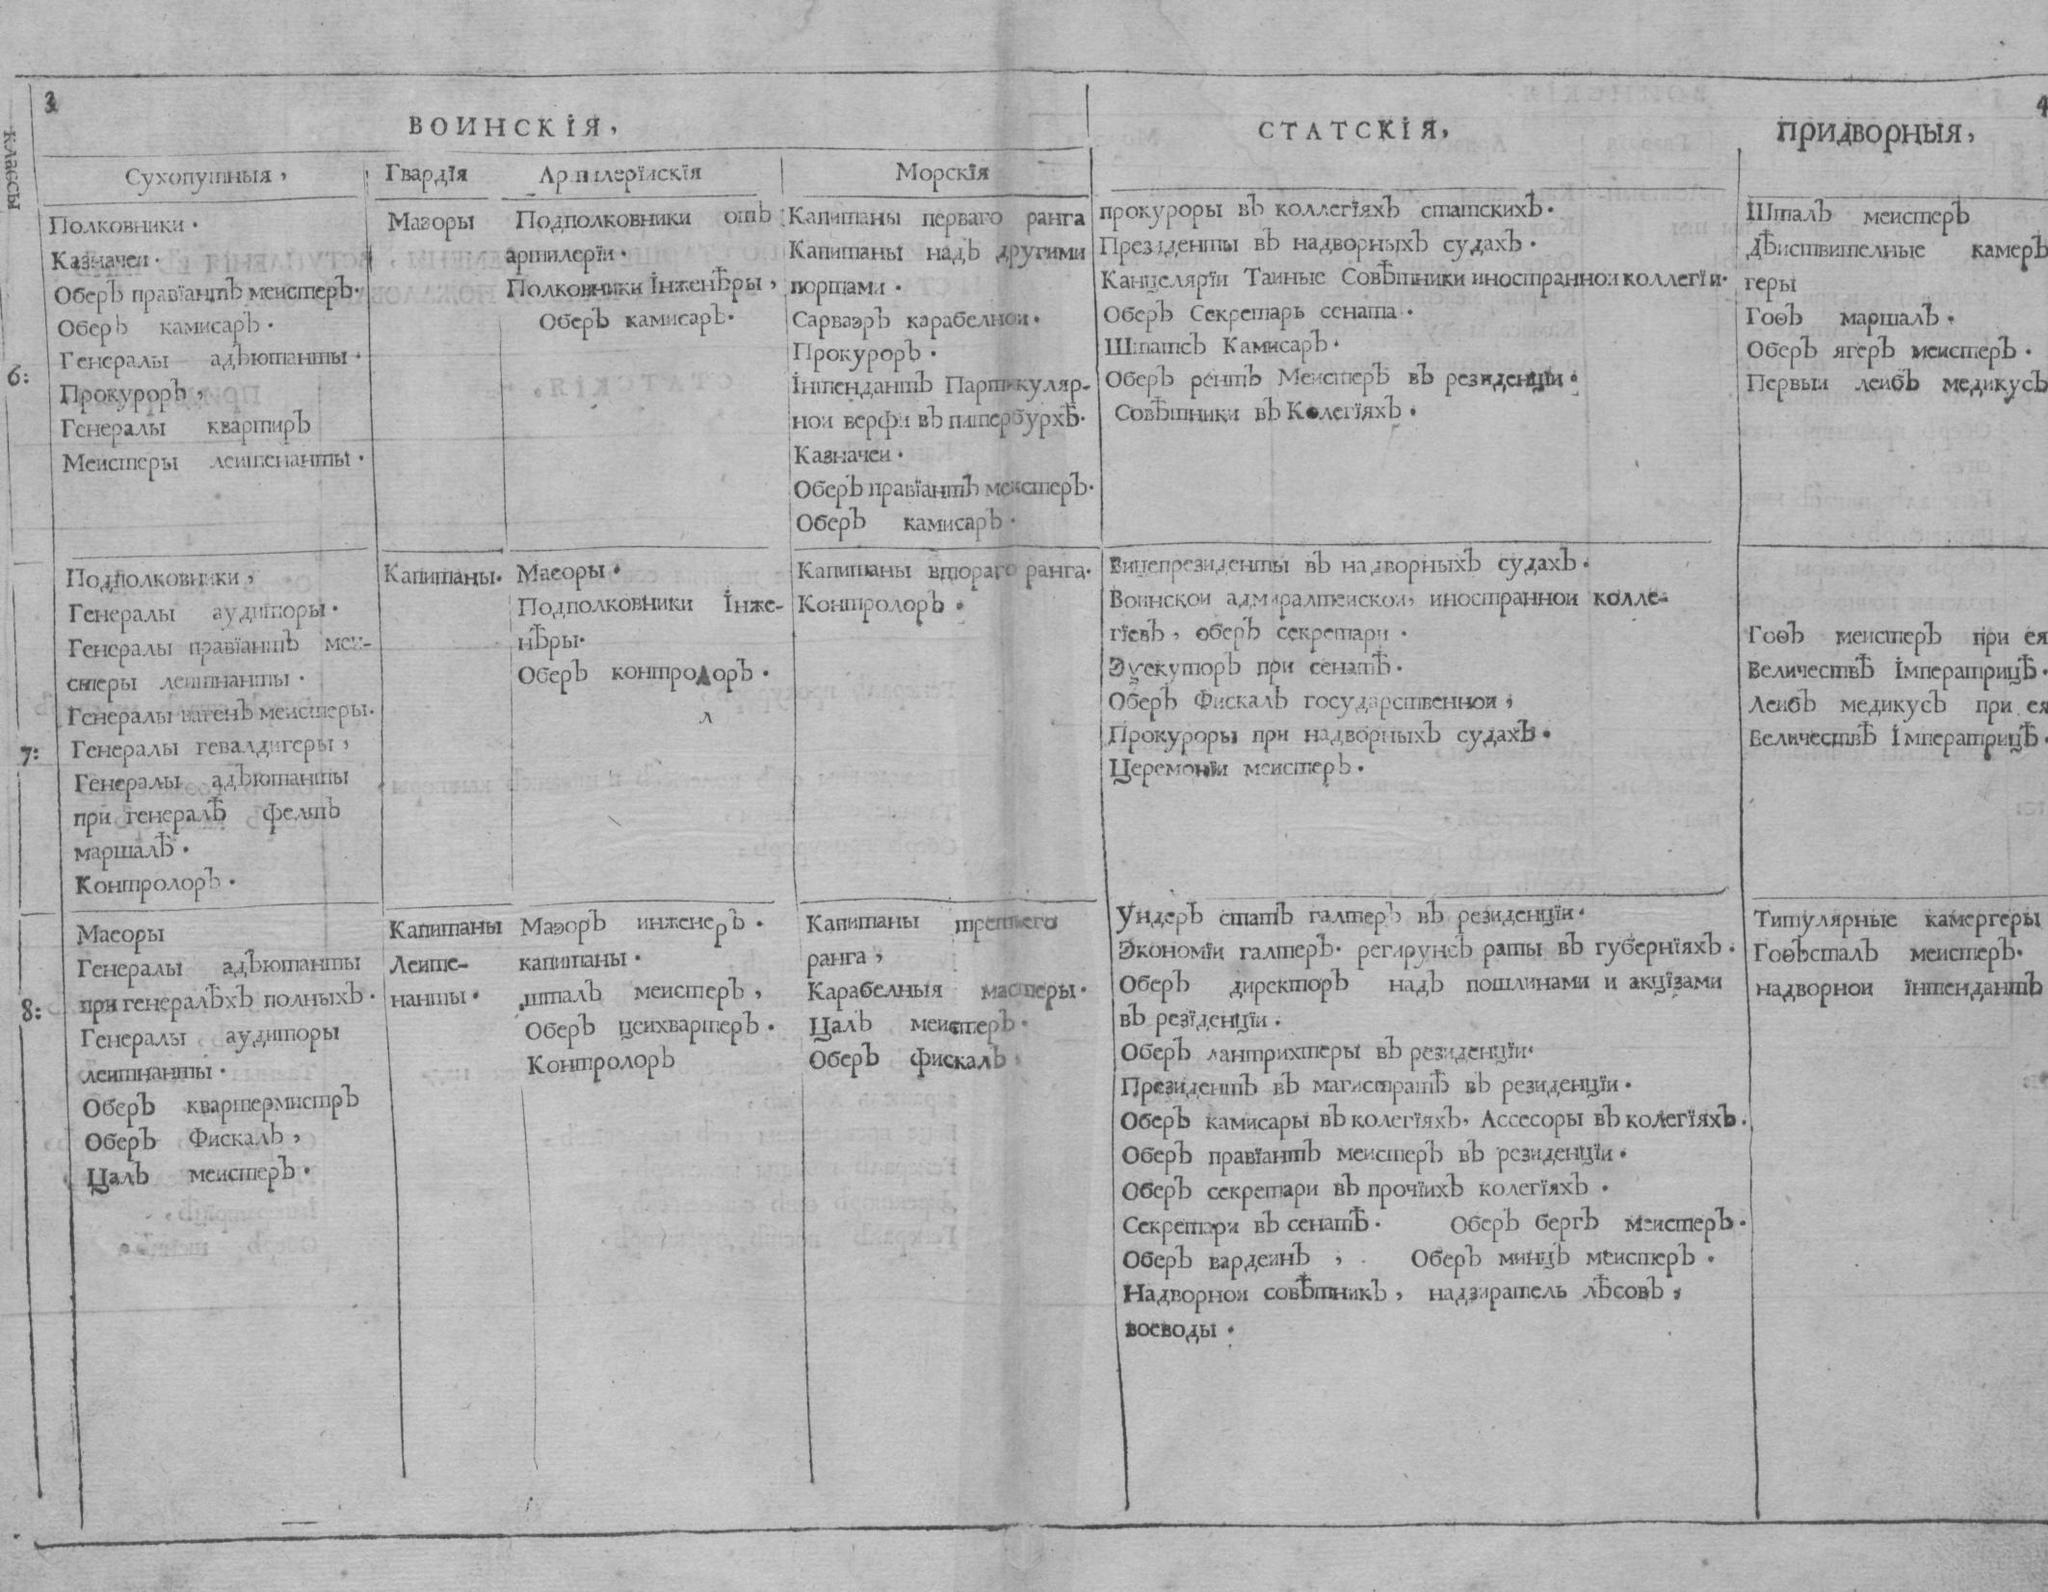 3
4
классы
ВОИНСКІЯ,
СТАТСКІЯ,
ПРИДВОРНЫЯ,
Сухопутныя,
Гвардїя
Артилерїискїя
Морскїя
6:
Полковники.
Казначеи.
Оберъ правїантъ меистеръ.
Оберъ камисаръ.
Генералы адъютанты.
Прокуроръ,
Генералы квартиръ
Меистеры леитенанты.
Маэоры
Подполковники отъ
артилерїи.
Полковники Інженѣры,
Оберъ камисаръ.
Капитаны перваго ранга
Капитаны надъ другими
портами.
Сарваэръ карабелнои.
Прокуроръ.
Інтендантъ Партикуляр-
нои верфи въ питербурхѣ.
Казначеи.
Оберъ правїантъ меистеръ.
Оберъ камисаръ.
прокуроры въ коллегїяхъ статскихъ.
Президенты въ надворныхъ судахъ.
Канцелярїи Таиные Совѣтники иностраннои коллегїи.
Оберъ Секретарь сената.
Штатсъ Камисаръ.
Оберъ рентъ Меистеръ въ резиденцїи.
Совѣтники въ Колегїяхъ.
Шталъ меистеръ
Дѣиствителные камеръ
геры
Гоѳъ маршалъ.
Оберъ ягеръ меистеръ.
Первыи леибъ медикусъ
7:
Подполковники,
Генералы аудиторы.
Генералы правїантъ меи-
стеры леитнанты.
Генералы вагенъ меистеры.
Генералы гевалдигеры,
Генералы адъютанты
при генералѣ фелтъ
маршалѣ.
Контролоръ.
Капитаны.
Маеоры.
Подполковники Інже-
нѣры.
Оберъ контролоръ.
л
Капитаны втораго ранга.
Контролоръ.
Вицепрезиденты въ надворныхъ судахъ.
Воинскои адмиралтеискои, иностраннои колле-
гїевъ, оберъ секретари.
Эѯекуторъ при сенатѣ.
Оберъ Фискалъ государственнои,
Прокуроры при надворныхъ судахъ.
Церемонїи меистеръ.
Гоѳъ меистеръ при ея
Величествѣ Імператрицѣ.
Леибъ медикусъ при ея
Величествѣ Імператрицѣ.
8:
Маеоры
Генералы адъютанты
при генералѣхъ полныхъ.
Генералы аудиторы
леитнанты.
Оберъ квартермистръ
Оберъ Фискалъ,
Цалъ меистеръ.
Капитаны
Леите-
нанты.
Маэоръ инженеръ.
капитаны.
шталъ меистеръ,
Оберъ цеихвартеръ.
Контролоръ
Капитаны третьего
ранга,
Карабелныя мастеры.
Цалъ меистеръ.
Оберъ фискалъ.
Ундеръ статъ галтеръ въ резиденцїи.
Экономїи галтеръ. регирунсъ раты въ губернїяхъ.
Оберъ директоръ надъ пошлинами и акцїзами
въ резїденцїи.
Оберъ лантрихтеры въ резиденцїи.
Президентъ въ магистратѣ въ резиденцїи.
Оберъ камисары въ колегїяхъ, Ассесоры въ колегїяхъ.
Оберъ правїантъ меистеръ въ резиденцїи.
Оберъ секретари въ прочїихъ колегїяхъ.
Секретари въ сенатѣ. Оберъ бергъ меистеръ.
Оберъ вардеинъ, Оберъ минцъ меистеръ.
Надворнои совѣтникъ, надзиратель лѣсовъ,
воеводы.
Титулярные камергеры
Гоѳъсталъ меистеръ.
надворнои їнтендантъ